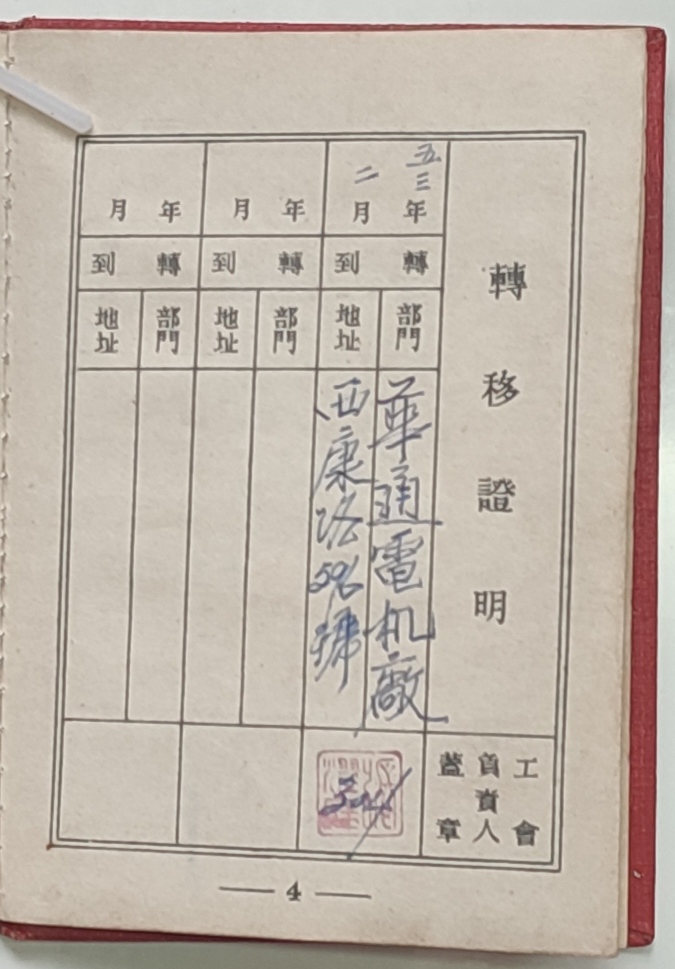 轉移證明
工會
負責人
蓋章
五三年二月
轉到
部門
地址
華通電机廠
西康路
號
年月
轉到
部門
地址
年月
轉到
部門
地址
4